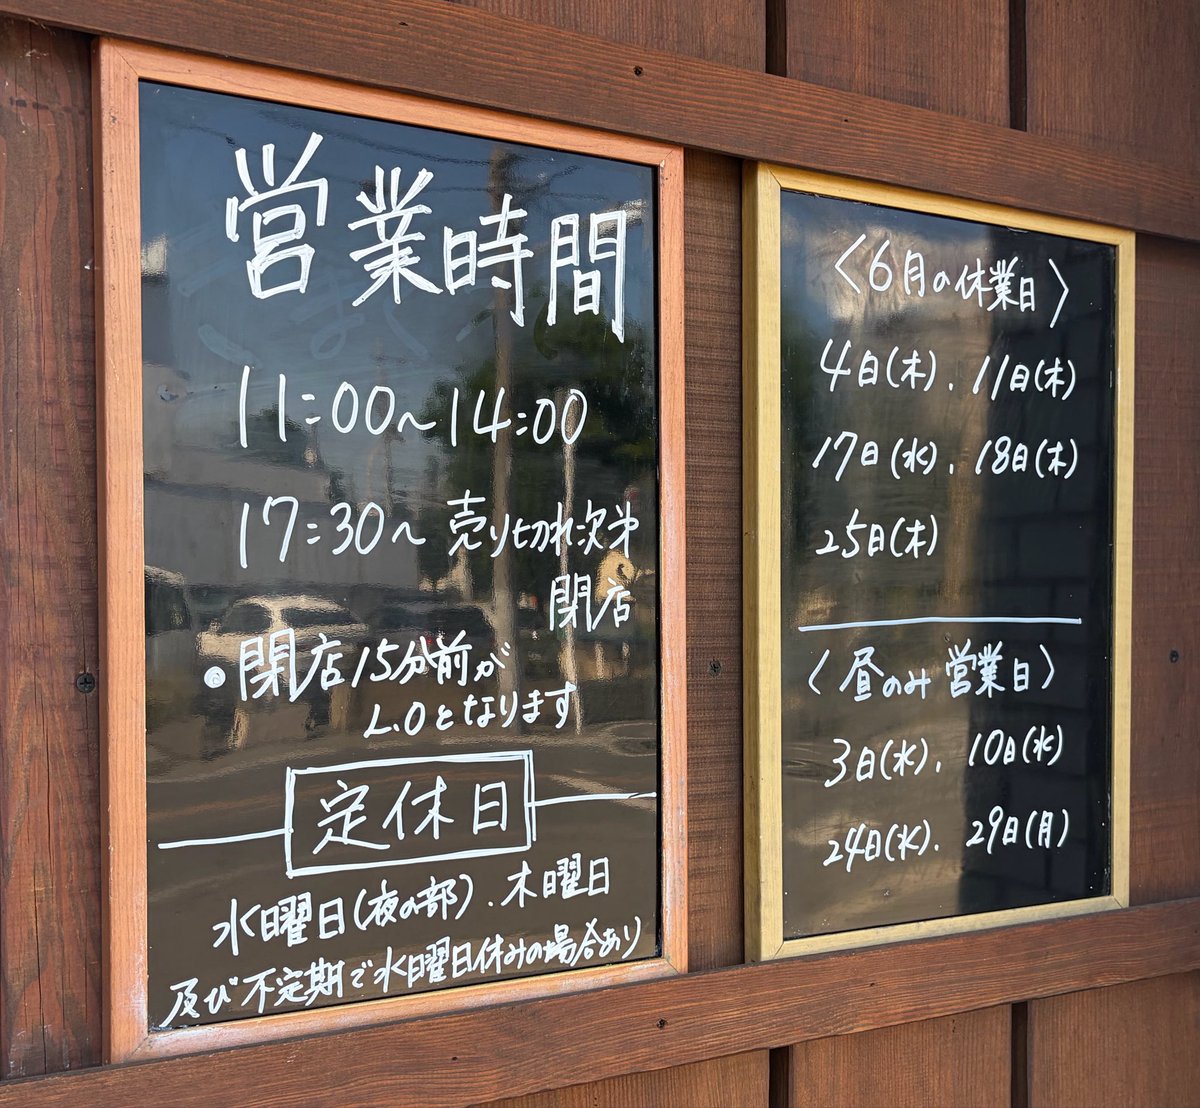 営業時間
11:00~14:00
17:30~売り切れ次第
閉店
●閉店15分前が
L.Oとなります
定休日
水曜日(夜の部).木曜日
及び不定期で水曜日休みの場合あり
〈6月の休業日〉
4日(木).11日(木)
17日(水).18日(木)
25日(木)
〈昼のみ営業日〉
3日(水).10日(水)
24日(水).29日(月)